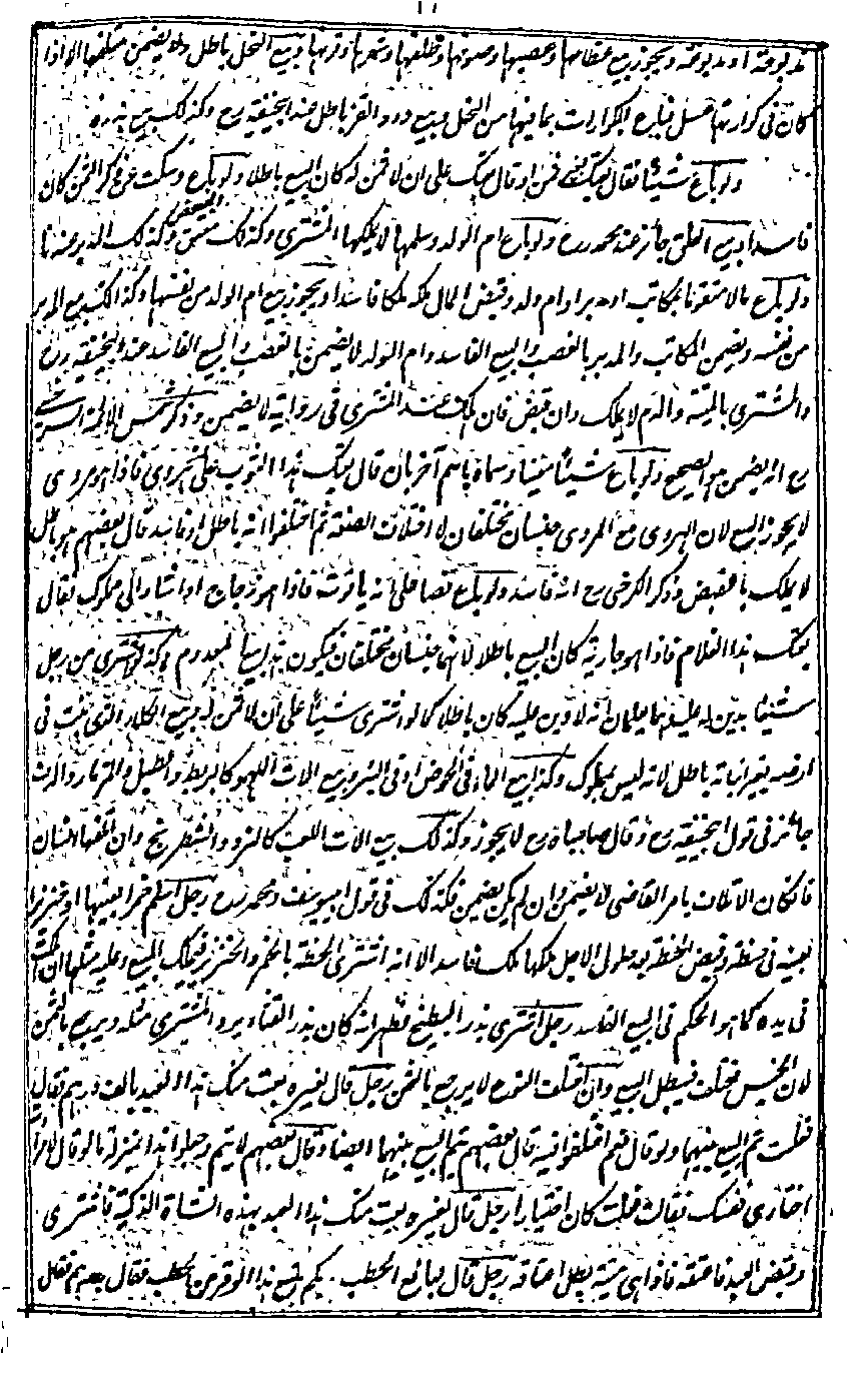 مدبوغة او مدبوغة ويجوز بيع عظامها وعصبها وصوفها وظلفها وشعرها وقرنها وبيع النحل باطل ولا يضمن متلفها الا اذا
كان فى كوارتها عسل فباع الكوارات بما فيها من النحل وبيع دود القز باطل عند ابيحنيفة رح وكذلك بيع بذره
ولو باع شيئا فقال بعتك بغير ثمن او قال بعتك على ان لا ثمن له كان البيع باطلا ولو باع وسكت عن ذكر الثمن كان
فاسدا وبيع العلق جائز عند محمد رح ولو باع ام الولد وسلمها لا يملكها المشترى وكذلك معتق البعض وكذلك المدبر عندنا
ولو باع مالا متقوما بمكاتب او مدبر او ام ولد وقبض المال ملكه ملكا فاسدا ويجوز بيع ام الولد من نفسها وكذا لك بيع المدبر
من نفسه ويضمن المكاتب والمدبر بالغصب والبيع الفاسد وام الولد لا يضمن بالغصب والبيع الفاسد عند ابيحنيفة رح
والمشترى بالميتة والدم لا يملك وان قبض فان هلك عند المشترى فى رواية لا يضمن وذكر شمس الائمة السرخسى
رح انه يضمن هو الصحيح ولو باع شيئا معينا وسماه باسم آخر بان قال بعتك هذا الثوب على انه هروى فاذا هو مروى
لا يجوز البيع لان الهروى مع المروى جنسان مختلفان لاختلاف الصنعة ثم اختلفوا انه باطل او فاسد قال بعضهم هو باطل
لا يملك بالقبض وذكر الكرخى رح انه فاسد ولو باع فصا على انه ياقوت فاذا هو زجاج او اشار الى مملوك فقال
بعتك هذا الغلام فاذا هو جارية كان البيع باطلا لانهما جنسان مختلفان فيكون هذا بيعا لمعدوم وكذا لو اشترى من رجل
شيئا بدين له عليه وهما يعلمان انه لا دين عليه كان باطلا كما لو اشترى شيئا على ان لا ثمن له وبيع الكلاء الذى نبت فى
ارضه بغير انباته باطل لانه ليس بمملوك وكذا بيع الماء فى الحوض او فى البئر وبيع الات اللهو كالبربط والطبل والمزمار والدف
جائز فى قول ابيحنيفة رح وقال صاحباه رح لا يجوز وكذلك بيع الات اللعب كالنرد والشطرنج وان اتلفها انسان
فان كان الاتلاف بامر القاضى لا يضمن وان لم يكن يضمن فكذلك فى قول ابى يوسف ومحمد رح رجل اسلم خمرا بعينها او خنزيرا
بعينه فى حنطة وقبض الحنطة بعد حلول الاجل ملكها ملكا فاسدا لانه اشترى الحنطة بالخمر والخنزير فيملك المبيع وعليه مثلها ان هلكت
فى يده كما هو الحكم فى البيع الفاسد رجل اشترى بذر البطيخ فظهر انه كان بذر القثاء يرد المشترى مثله ويرجع بالثمن
لان الجنس مختلف فيبطل البيع وان اختلف النوع لا يرجع بالثمن رجل قال لغيره بعت منك هذا العبد بالف درهم فقال
فعلت تم البيع بينهما ولو قال نعم اختلفوا فيه قال بعضهم يتم البيع بينهما ايضا وقال بعضهم لا يتم وجعلوا هذا بمنزلة ما لو قال لامرأته
اختارى نفسك فقالت فعلت كان اختيارا رجل قال لغيره بعت منك هذا العبد بهذه الشاة الذكية فاشترى
وقبض العبد فاعتقه فاذا هى ميتة بطل اعتاقه رجل قال لبائع الحطب بكم تبيع هذا الوقر من الحطب فقال بدرهم فقال